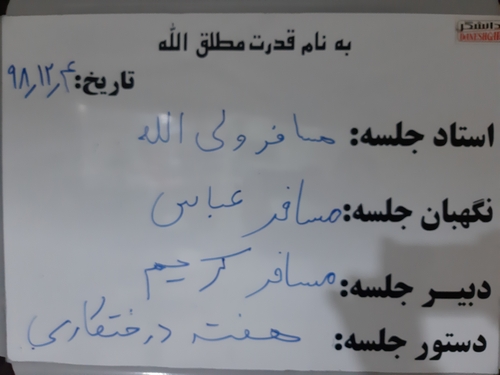 دانشگر
DANESHGAR
به نام قدرت مطلق الله
تاریخ: ۹۸٫۱۲٫۴
استاد جلسه: مسافر ولی الله
نگهبان جلسه: مسافر عباس
دبیر جلسه: مسافر کریم
دستور جلسه: هفته درختکاری